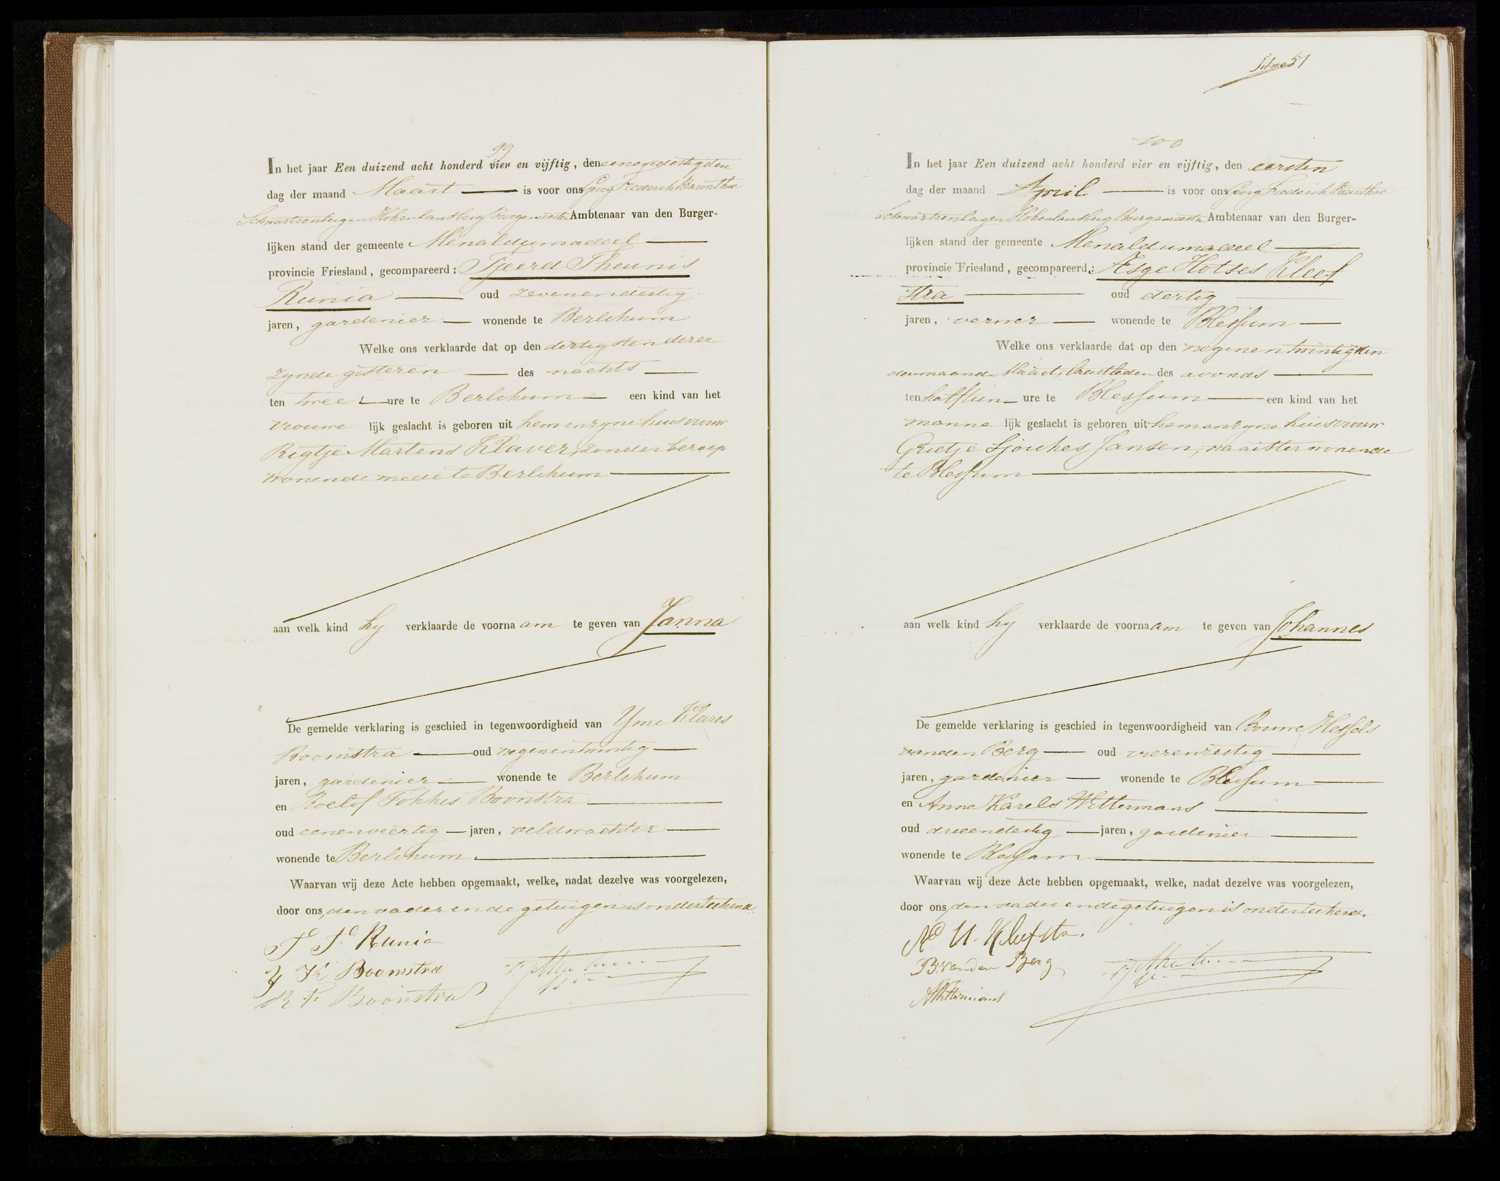 99
In het jaar Een duizend acht honderd vier en vijftig, den eenendertigsten
dag der maand Maart is voor ons Georg Frederik Baron thoe
Schwartzenberg en Hohenlansberg Burgemeester Ambtenaar van den Burger-
lijken stand der gemeente Menaldumadeel
provincie Friesland, gecompareerd: Tjeerd Theunis
Runia oud zevenendertig
jaren, gardenier wonende te Berlikum
Welke ons verklaarde dat op den dertigsten dezer
zynde gisteren des nachts
ten twee ure te Berlikum een kind van het
vrouwe lijk geslacht is geboren uit hem en zyne huisvrouw
Rigtje Martens Kluver, zonder beroep
wonende mede te Berlikum
aan welk kind hy verklaarde de voornaam te geven van Janna
De gemelde verklaring is geschied in tegenwoordigheid van Yme Klazes
Boomstra oud negenentwintig
jaren, gardenier wonende te Berlikum
en Roelof Fokkes Boonstra
oud eenenveertig jaren, veldwachter
wonende te Berlikum
Waarvan wij deze Acte hebben opgemaakt, welke, nadat dezelve was voorgelezen,
door ons, den vader en de getuigen is onderteekend.
T T Runia
Y Kl Boomstra
R F Boonstra
51
100
In het jaar Een duizend acht honderd vier en vijftig, den eersten
dag der maand April is voor ons Georg Frederik Baron thoe
Schwartzenberg en Hohenlansberg Burgemeester Ambtenaar van den Burger-
lijken stand der gemeente Menaldumadeel
provincie Friesland, gecompareerd: Asge Hotses Kleef
stra oud dertig
jaren, verwer wonende te Blessum
Welke ons verklaarde dat op den negenentwintigsten
der maand Maart, laatstleden des avonds
ten half tien ure te Blessum een kind van het
manne lijk geslacht is geboren uit hem en zyne huisvrouw
Grietje Sjoukes Jansen, naaister wonende
te Blessum
aan welk kind hy verklaarde de voornaam te geven van Johannes
De gemelde verklaring is geschied in tegenwoordigheid van Bouwe Hessels
van den Berg oud vierenzestig
jaren, gardenier wonende te Blessum
en Anne Karels Wittermans
oud drieendertig jaren, gardenier
wonende te Blessum
Waarvan wij deze Acte hebben opgemaakt, welke, nadat dezelve was voorgelezen,
door ons, den vader en de getuigen is onderteekend.
A H Kleefstra.
B van den Berg
A Wittermans